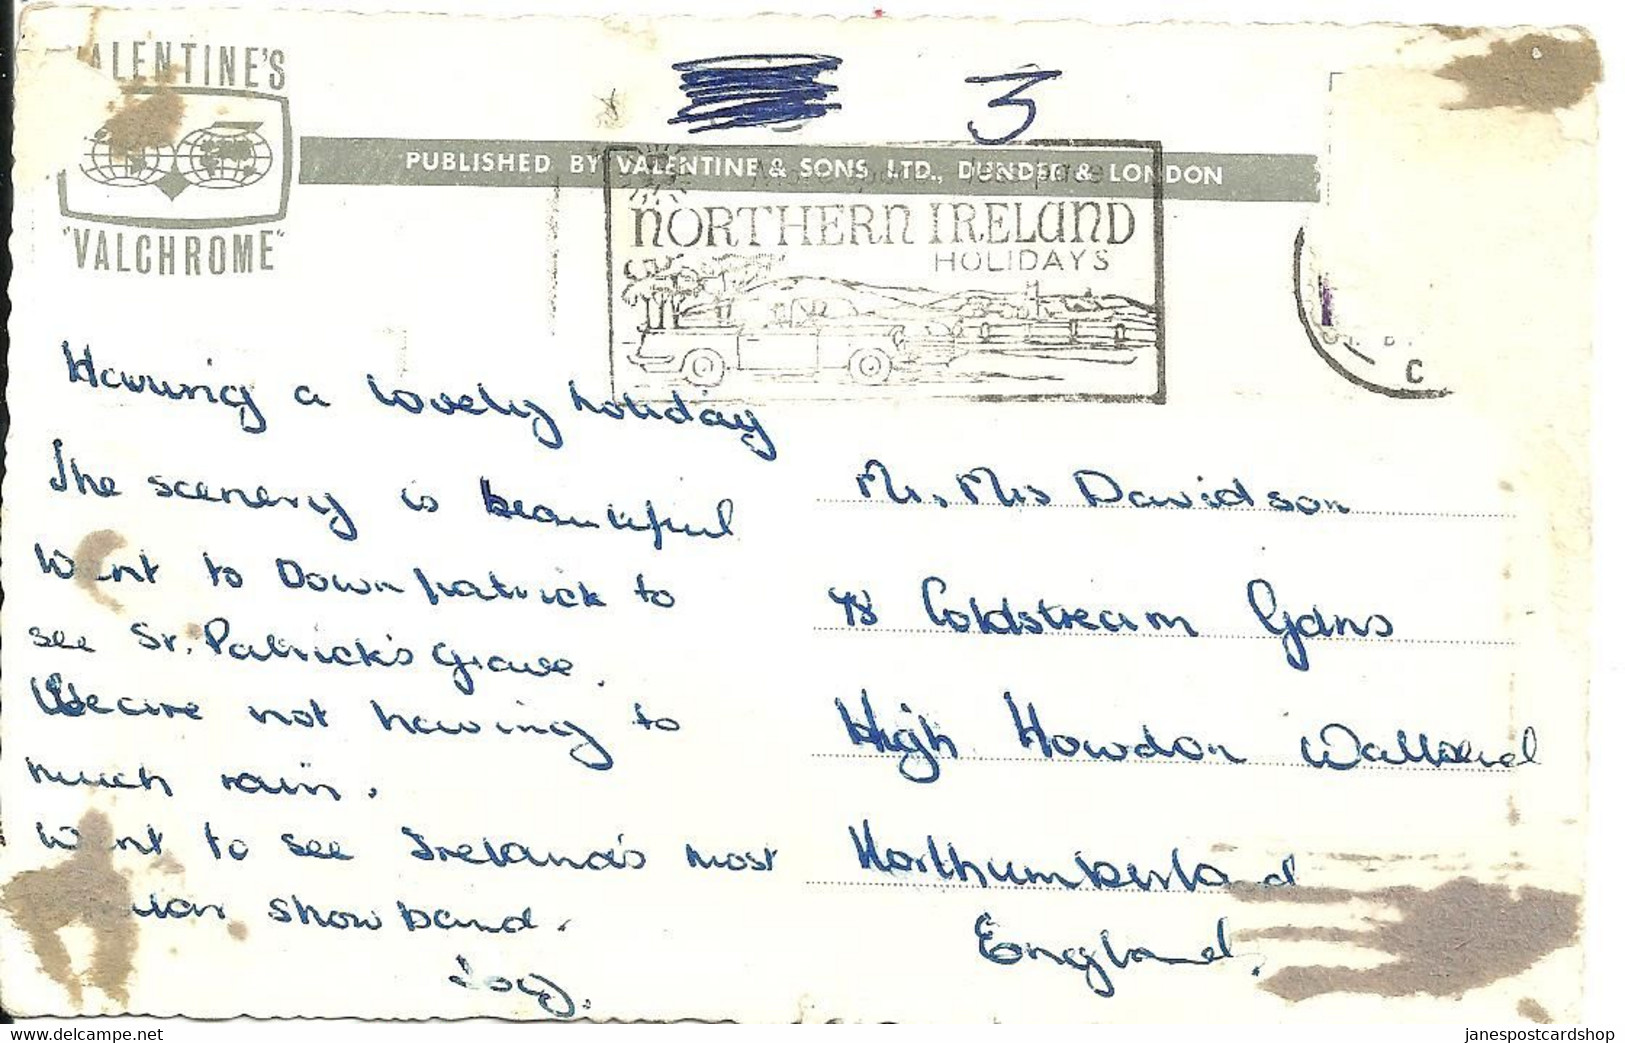 VALENTINE'S
"VALCHROME"
3
PUBLISHED BY VALENTINE & SONS, LTD., DUNDEE & LONDON
NORTHERN IRELAND
HOLIDAYS
C
Having a lovely holiday
The scenery is beautiful
Went to Downpatrick to
see St. Patrick's grave.
We are not having to
much rain.
Went to see Ireland's most
show band.
Joy.
Mr. Mrs Davidson
48 Coldstream Gdns
High Howdon Wallsend
Northumberland
England.
www.delcampe.net
janespostcardshop